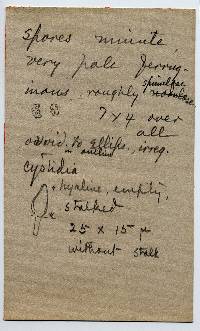 spores minute,
very pale ferrug-
inous, roughly
7 x 4 over
all
ovoid to ellips., irreg.
cystidia
hyaline, empty,
stalked
25 x 15 µ
without stalk